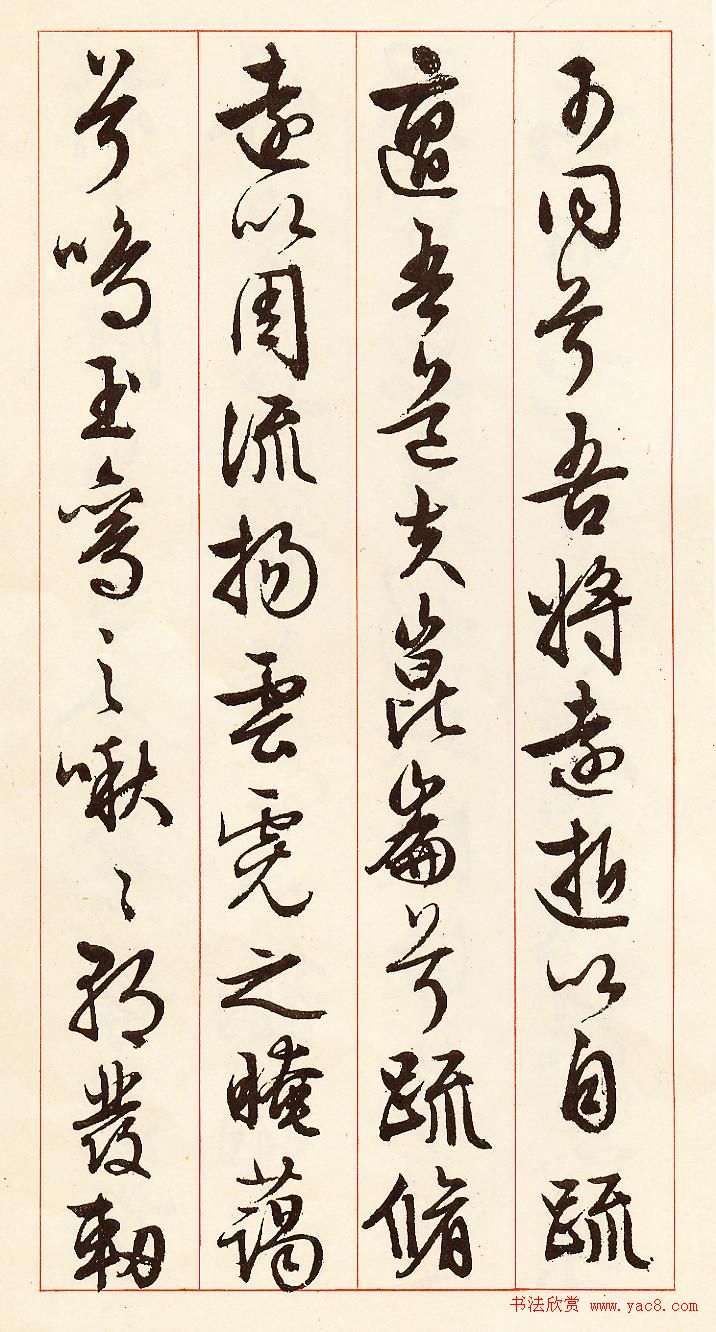 可同兮吾將遠逝以自疏
邅吾道夫崑崙兮疏脩
遠以周流揚雲霓之晻藹
兮鳴玉鸞之啾々朝發軔
书法欣赏 www.yac8.com